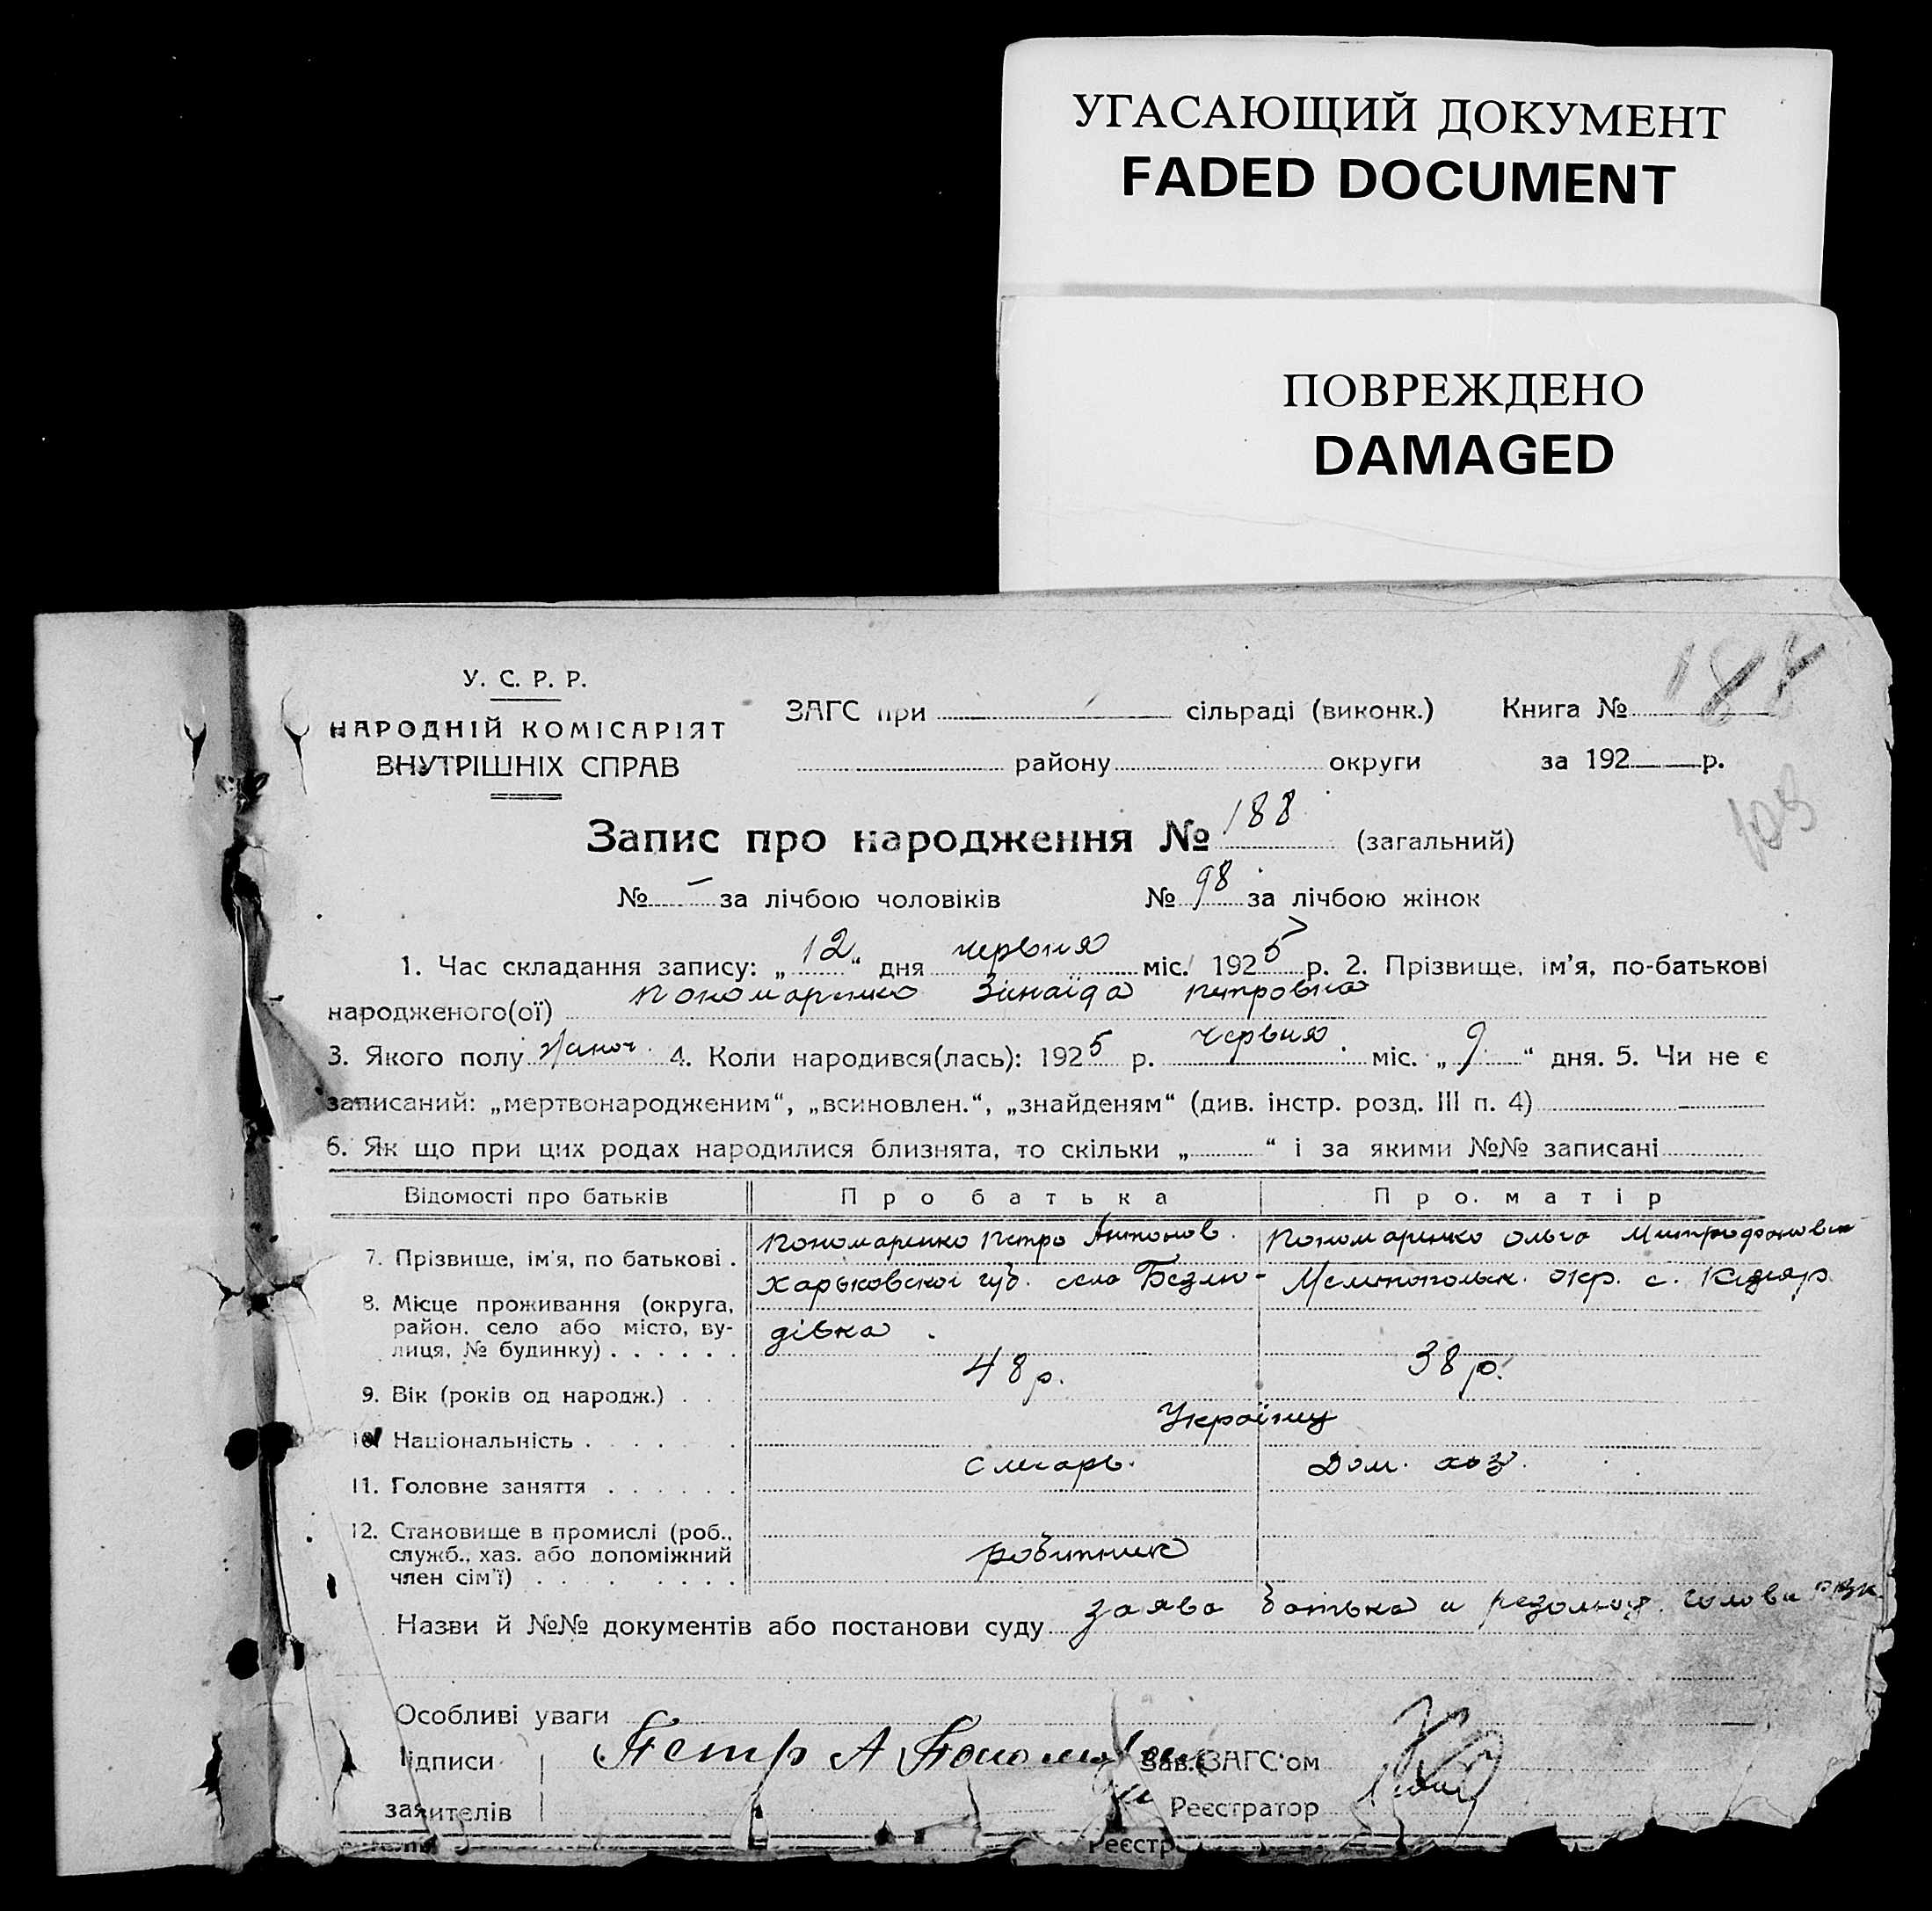 УГАСАЮЩИЙ ДОКУМЕНТ
FADED DOCUMENT
ПОВРЕЖДЕНО
DAMAGED
188
У. С. Р. Р.
НАРОДНІЙ КОМІСАРІЯТ
ВНУТРІШНІХ СПРАВ
ЗАГС при сільраді (виконк.) Книга №
району округи за 192 р.
Запис про народження № 188 (загальний)
№ – за лічбою чоловіків № 98 за лічбою жінок
1. Час складання запису: „12“ дня червня міс. 1925 р. 2. Прізвище, ім'я, по-батькові
народженого(ої) Пономаренко Зінаіда Петровна
3. Якого полу жіноч. 4. Коли народився(лась): 1925 р. червня міс. „9“ дня. 5. Чи не є
записаний: „мертвонародженим“, „всиновлен.“, „знайденям“ (див. інстр. розд. III п. 4)
6. Як що при цих родах народилися близнята, то скільки „ “ і за якими №№ записані
Відомості про батьків Про батька Про матір
7. Прізвище, ім'я, по батькові . Пономаренко Петро Антонов. Пономаренко Ольга Митрофановна
8. Місце проживання (округа, район, село або місто, вулиця, № будинку) Харьковскоі губ. село Безлю-
дівка . Мелітопольск. окр. с.
9. Вік (років од народж.) 48 р. 38 р.
10. Національність Українці
11. Головне заняття слюсарь. Дом. хоз.
12. Становище в промислі (роб.,
служб., хаз. або допоміжний
член сім'ї) робитник
Назви й №№ документів або постанови суду заява батька и резолюц. голови
Особливі уваги
Підписи Петр А Пономарен Зав. ЗАГС'ом
заявителів Реєстратор
Реєстр